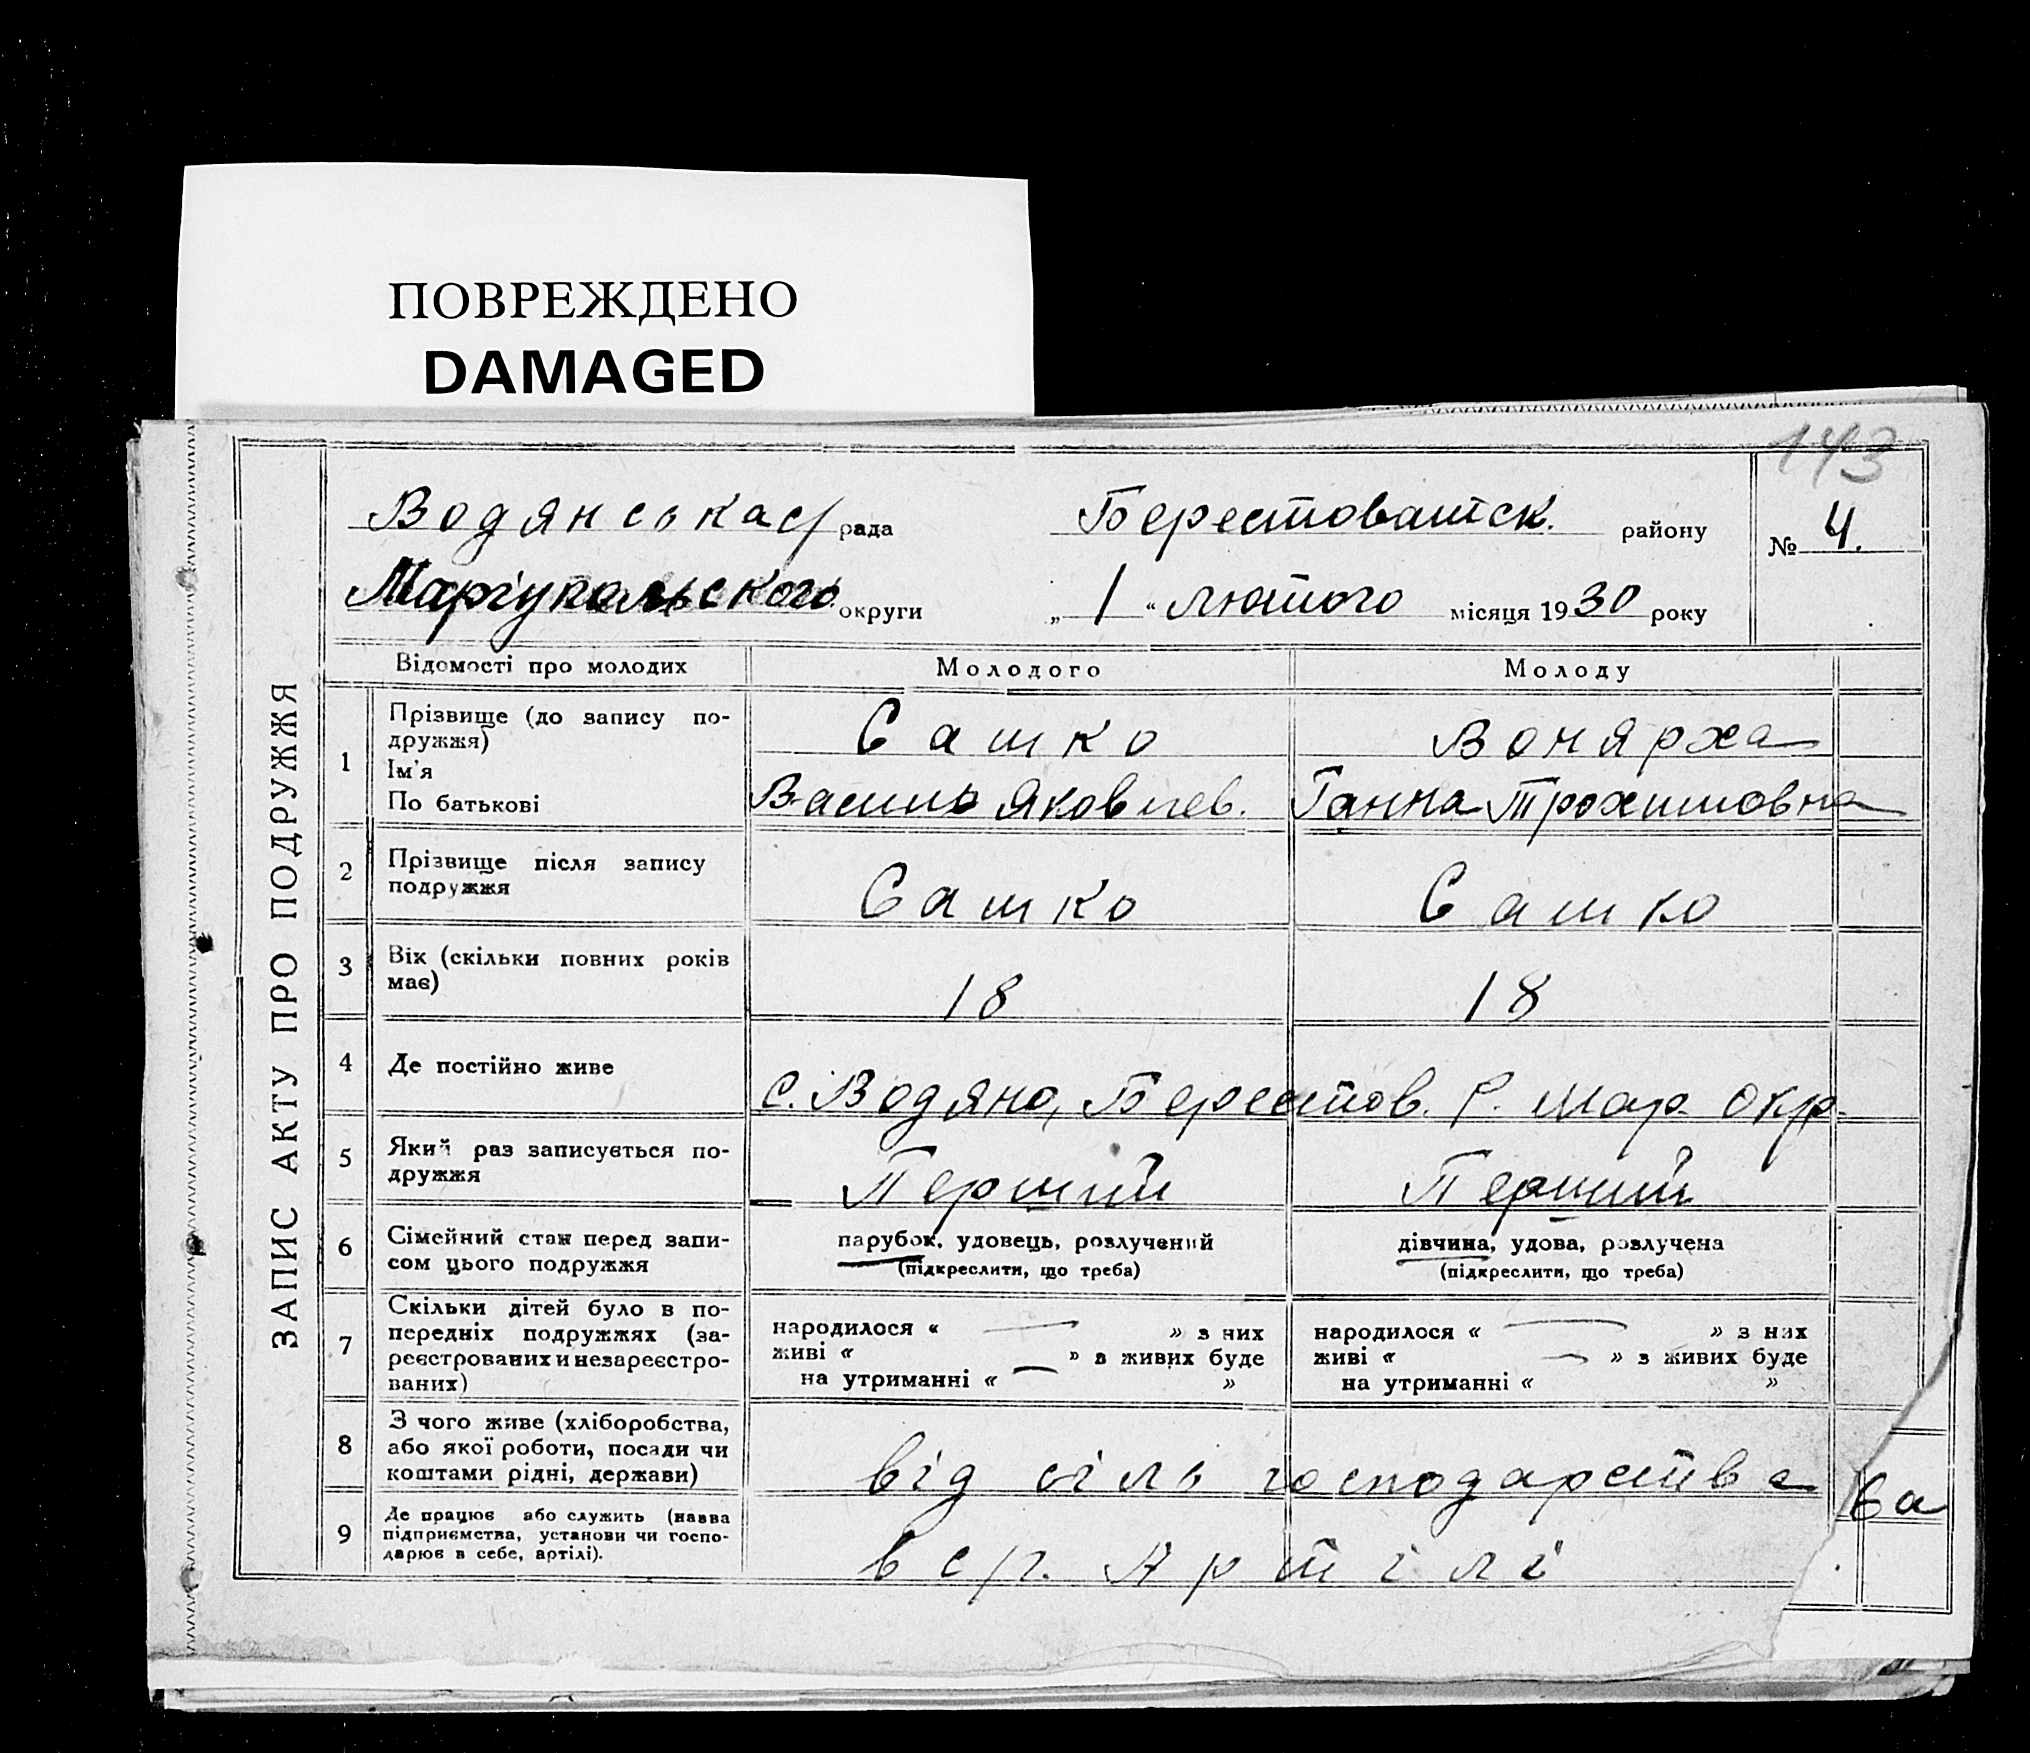 ПОВРЕЖДЕНО
DAMAGED
143
Водянська с/рада Берестоватск. району № 4.
Маріупольського округи „1“ лютого місяця 1930 року
ЗАПИС АКТУ ПРО ПОДРУЖЖЯ
Відомості про молодих Молодого Молоду
1 Прізвище (до запису по-
дружжя) Сашко Вонярха
Ім'я
По батькові Василь Яковлев. Ганна Трохимовна
2 Прізвище після запису
подружжя Сашко Сашко
3 Вік (скільки повних років
має) 18 18
4 Де постійно живе с. Водяно, Берестов. Р. Мар. Окр.
5 Який раз записується по-
дружжя Перший Перший
6 Сімейний стан перед запи-
сом цього подружжя
парубок, удовець, розлучений
(підкреслити, що треба)
дівчина, удова, розлучена
(підкреслити, що треба)
7 Скільки дітей було в по-
передніх подружжях (за-
реєстрованих и незареєстро-
ваних)
народилося « — » з них
живі « » з живих буде
на утриманні « — »
народилося « — » з них
живі « — » з живих буде
на утриманні « »
8 З чого живе (хліборобства,
або якої роботи, посади чи
коштами рідні, держави) від сіль господарства
9 Де працює або служить (назва
підприємства, установи чи госпо-
дарює в себе, артілі). в с/г. Артілі
ва